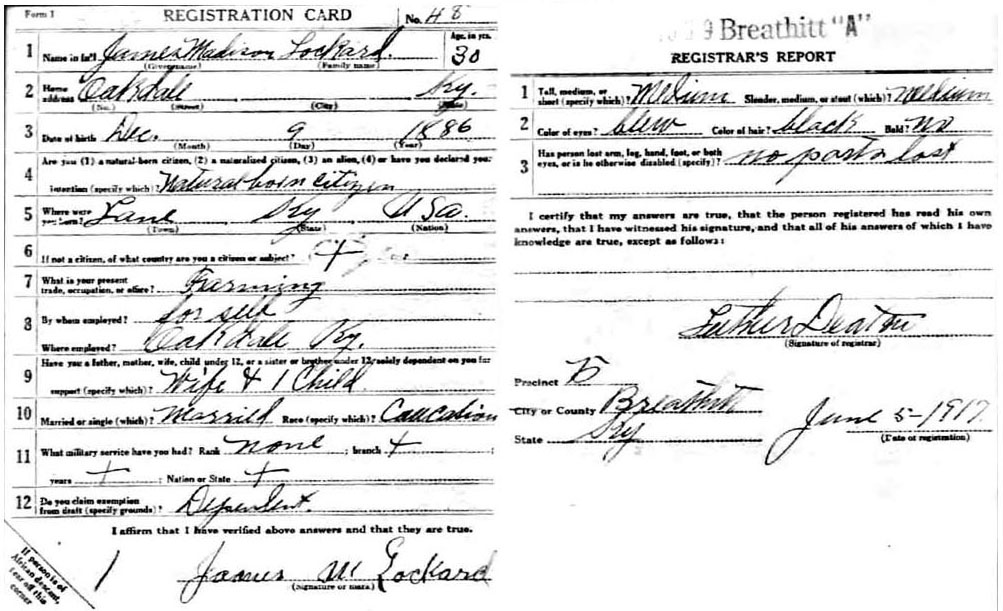 Form 1 REGISTRATION CARD No. 48
1 Name in full James Madison Lockard Age, in yrs. 30
(Given name) (Family name)
2 Home address Oakdale Ky.
(No.) (Street) (City) (State)
3 Date of birth Dec. 9 1886
(Month) (Day) (Year)
Are you (1) a natural-born citizen, (2) a naturalized citizen, (3) an alien, (4) or have you declared your
4 intention (specify which)? Natural born citizen
5 Where were you born? Lane Ky USa.
(Town) (State) (Nation)
6 If not a citizen, of what country are you a citizen or subject?
7 What is your present trade, occupation, or office? Farming
8 By whom employed? for self
Where employed? Oakdale Ky.
9 Have you a father, mother, wife, child under 12, or a sister or brother under 12, solely dependent on you for
support (specify which)? Wife & 1 Child
10 Married or single (which)? Married Race (specify which)? Caucation
11 What military service have you had? Rank none ; branch +
years + ; Nation or State +
12 Do you claim exemption from draft (specify grounds)? Dependent.
I affirm that I have verified above answers and that they are true.
1 James M Lockard
(Signature or mark)
If person is of
African descent,
tear off this
corner
9 Breathitt "A"
REGISTRAR'S REPORT
1 Tall, medium, or short (specify which)? Medium Slender, medium, or stout (which)? medium
2 Color of eyes? blew Color of hair? black Bald? No
3 Has person lost arm, leg, hand, foot, or both
eyes, or is he otherwise disabled (specify)? no parts lost
I certify that my answers are true, that the person registered has read his own
answers, that I have witnessed his signature, and that all of his answers of which I have
knowledge are true, except as follows:
Luther Deaton
(Signature of registrar)
Precinct
City or County Breathitt
State Ky
June 5-1917
(Date of registration)